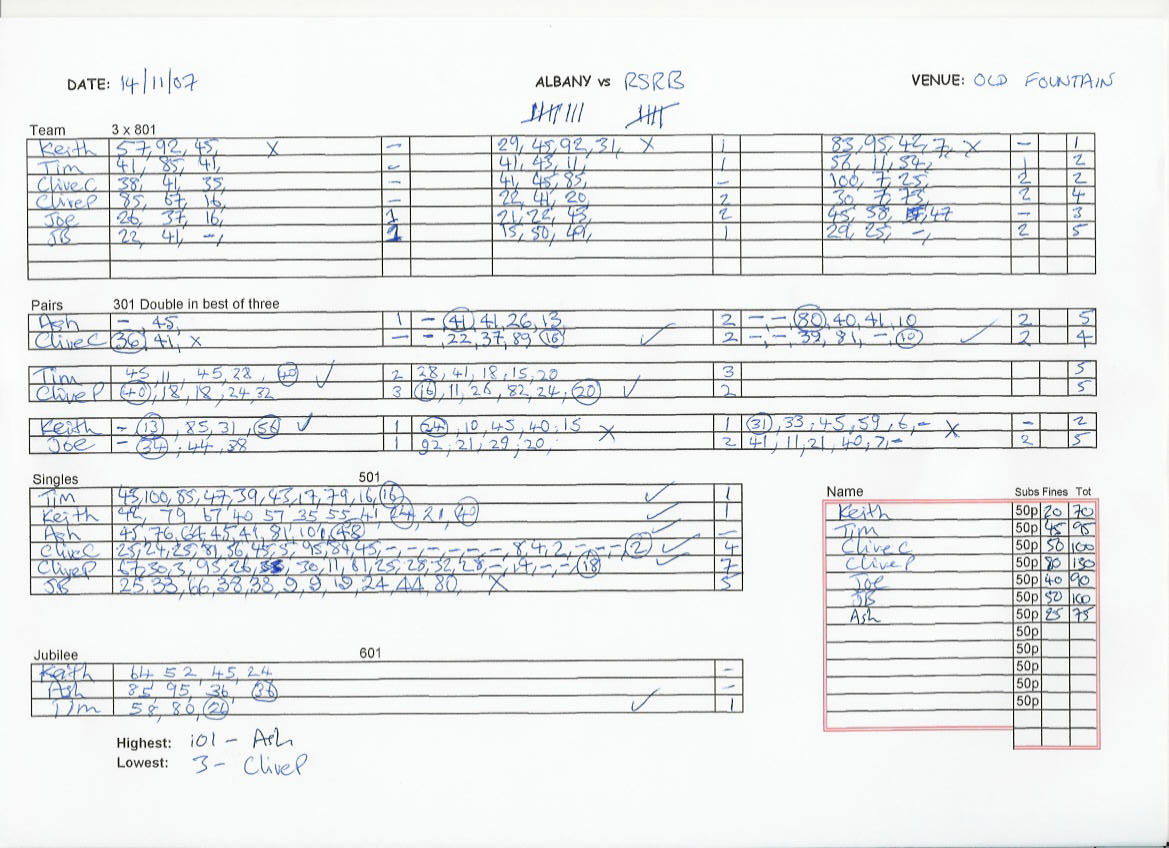 DATE: 14/11/07 ALBANY vs RSRB VENUE: OLD FOUNTAIN
Team 3 x 801
Keith 57, 92, 45, X – 29, 45, 92, 31, X 1 83, 95, 42, 7, X – 1
Tim 41, 85, 41, – 41, 43, 11, 1 56, 11, 52, 1 2
Clive C 38, 41, 35, – 41, 45, 85, – 100, 7, 25, 2 2
Clive P 85, 67, 16, – 22, 41, 20 2 30, 7, 73, 2 4
Joe 26, 37, 16, 1 21, 22, 43, 2 45, 58, 47 – 3
JB 22, 41, –, 15, 50, 49, 1 29, 25, –, 2 5
Pairs 301 Double in best of three
Ash –, 45, 1 –, 41, 41, 26, 13, 2 –, –, 80, 40, 41, 10 2 5
Clive C 36, 41, X – –, 22, 37, 89, 16 ✓ 2 –, –, 39, 81, –, 10 ✓ 2 4
Tim 45, 11, 45, 28, 40 ✓ 2 28, 41, 18, 15, 20 3 5
Clive P 40, 18, 18, 24, 32 3 16, 11, 26, 82, 24, 20 ✓ 2 5
Keith – 13, 85, 31, 56 ✓ 1 24, 10, 45, 40, 15 X 1 31, 33, 45, 59, 6, – X – 2
Joe – 34, 44, 38 1 92, 21, 29, 20, 2 41, 11, 21, 40, 7, – 2 5
Singles 501
Tim 43, 100, 85, 47, 39, 43, 17, 79, 16, 16 ✓ 1
Keith 79 67 40 57 35 55, 41, 21, 40 ✓ 1
Ash 45, 76, 64, 45, 41, 81, 101, 48 ✓ –
Clive C 25, 24, 25, 81, 56, 45, 5, 95, 84, 45, –, –, –, –, –, –, 8, 4, 2, –, –, –, 2 ✓ 4
Clive P 67, 30, 3, 95, 26, 30, 11, 61, 25, 28, 32, 28, –, 14, –, –, 18 ✓ 7
JB 25, 33, 66, 38, 38, 9, 9, 19, 24, 44, 80, X 5
Name Subs Fines Tot
Keith 50p 20 70
Tim 50p 45 95
Clive C 50p 50 100
Clive P 50p 80 130
Joe 50p 40 90
JB 50p 50 100
Ash 50p 25 75
50p
50p
50p
50p
50p
Jubilee 601
Keith 64 52, 45, 24 –
Ash 85, 95, 36, 36 –
Tim 58, 80, 26 ✓ 1
Highest: 101 – Ash
Lowest: 3 – Clive P